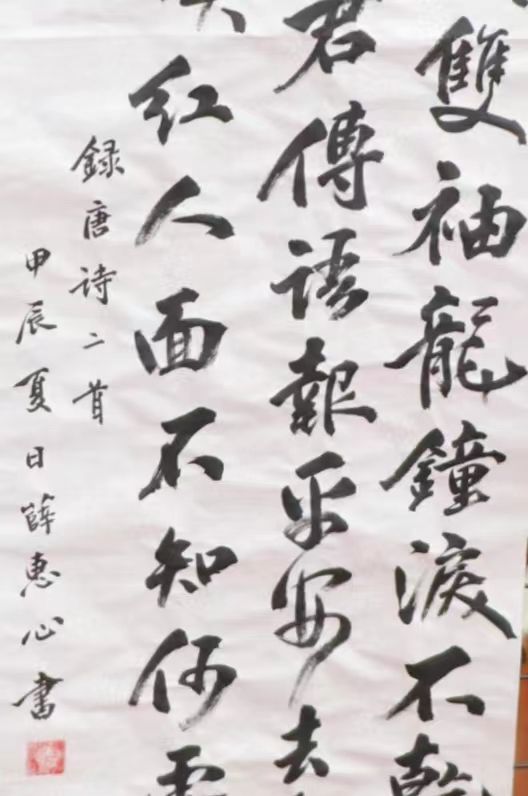 雙袖龍鐘淚不乾
君傳語報平安去
紅人面不知何處
録唐詩二首
甲辰夏日薛惠心書